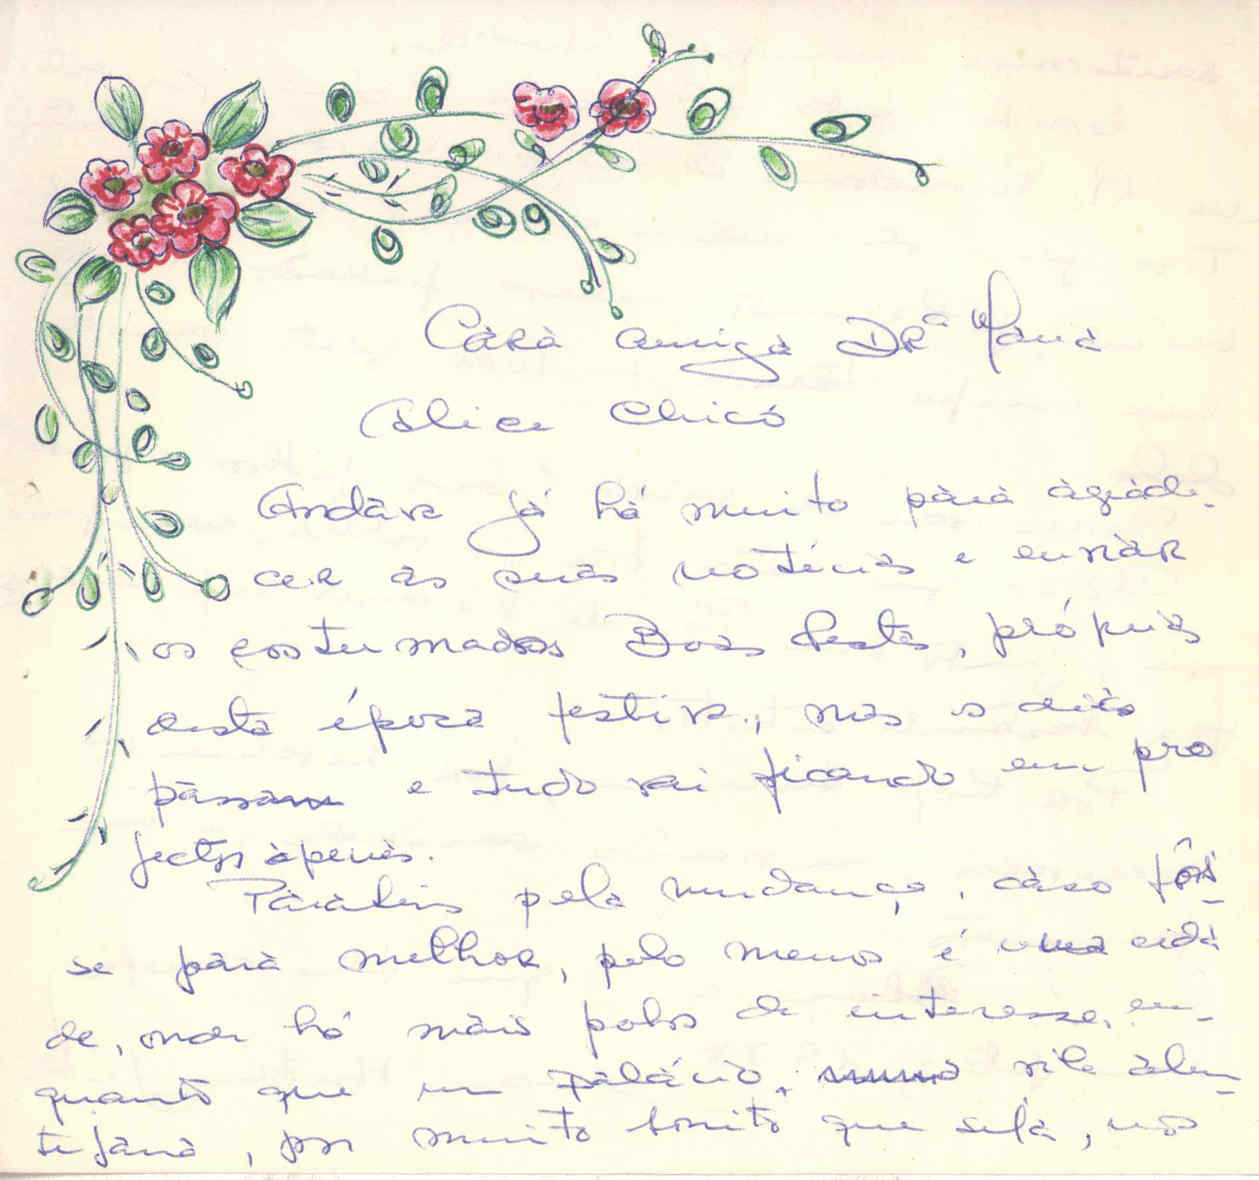 Cara amiga DRª Maria
Alice Chicó
Andava já há muito para agrade-
cer as suas notícias e enviar
os costumados Boas Festas, próprias
desta época festiva, mas os dias
passam e tudo vai ficando em pro
jectos apenas.
Parabéns pela mudança, caso fôs-
se para melhor, pelo menos é uma cida
de, onde há mais polos de interesse, en-
quanto que um palácio, numa vila alen-
tejana, por muito bonito que seja, não